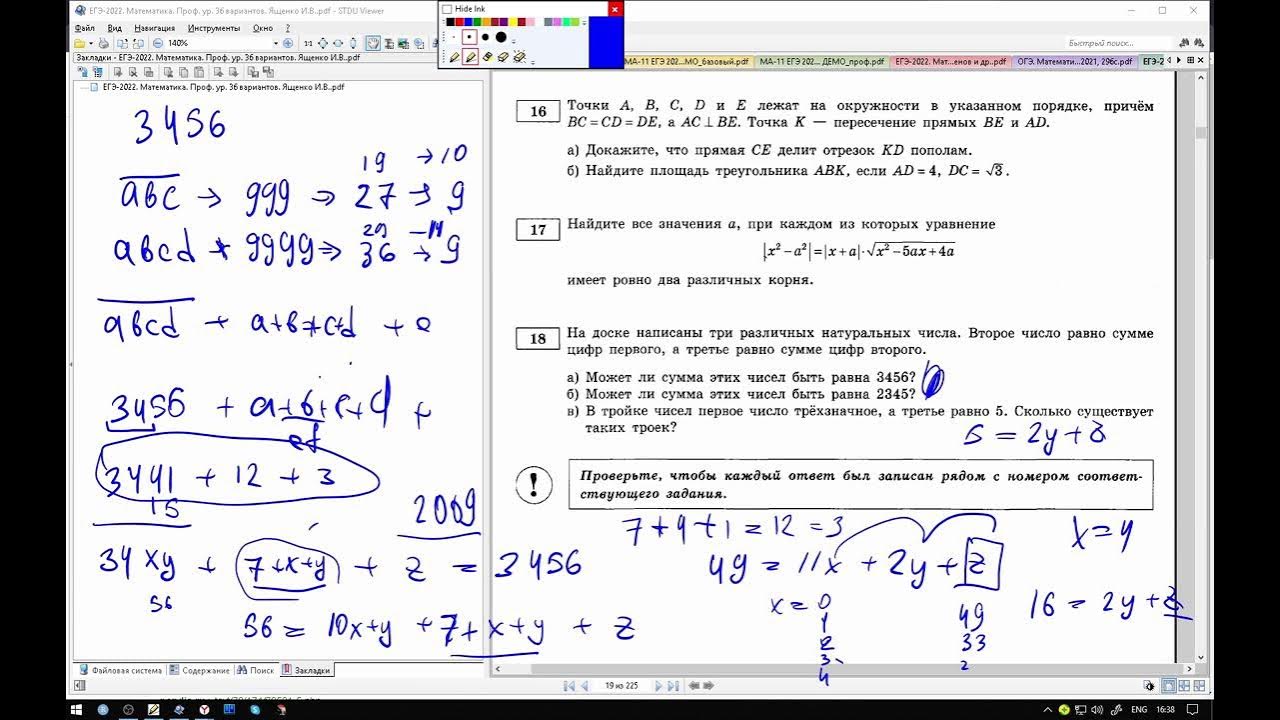 ЕГЭ-2022. Математика. Проф. ур. 36 вариантов. Ященко И.В..pdf - STDU Viewer
Hide Ink
Файл Вид Навигация Инструменты Окно ?
140%
Быстрый поиск...
Закладки - ЕГЭ-2022. Математика. Проф. ур. 36 вариантов. Ященко И.В..pdf
МО_базовый.pdf
МА-11 ЕГЭ 202... ДЕМО_проф.pdf
ЕГЭ-2022. Мат...енов и др..pdf
ОГЭ. Математи...2021, 296с.pdf
ЕГЭ-2
ЕГЭ-2022. Математика. Проф. ур. 36 вариантов. Ященко И.В..pdf
3456
19 → 10
abc → 999 ⇒ 27 → 9
abcd → 9999 ⇒ 36 → 9
abcd + a+b+c+d +
3456 + a+b+c+d +
3441 + 12 + 3
15
2009
34xy + 7+x+y + z = 3456
56
56 = 10x+y + 7+x+y + z
16 Точки A, B, C, D и E лежат на окружности в указанном порядке, причём
BC = CD = DE, а AC ⊥ BE. Точка K — пересечение прямых BE и AD.
а) Докажите, что прямая CE делит отрезок KD пополам.
б) Найдите площадь треугольника ABK, если AD = 4, DC = √3.
17 Найдите все значения a, при каждом из которых уравнение
|x² − a²| = |x + a| · √x² − 5ax + 4a
имеет ровно два различных корня.
18 На доске написаны три различных натуральных числа. Второе число равно сумме
цифр первого, а третье равно сумме цифр второго.
а) Может ли сумма этих чисел быть равна 3456?
б) Может ли сумма этих чисел быть равна 2345?
в) В тройке чисел первое число трёхзначное, а третье равно 5. Сколько существует
таких троек?
5 = 2y + 3
! Проверьте, чтобы каждый ответ был записан рядом с номером соответ-
ствующего задания.
7 + 4 + 1 = 12 = 3
x = 4
49 = 11x + 2y + z
x = 0 49
1
2 33
3 2
4
16 = 2y + z
Файловая система Содержание Поиск Закладки
19 из 225
ENG 16:38